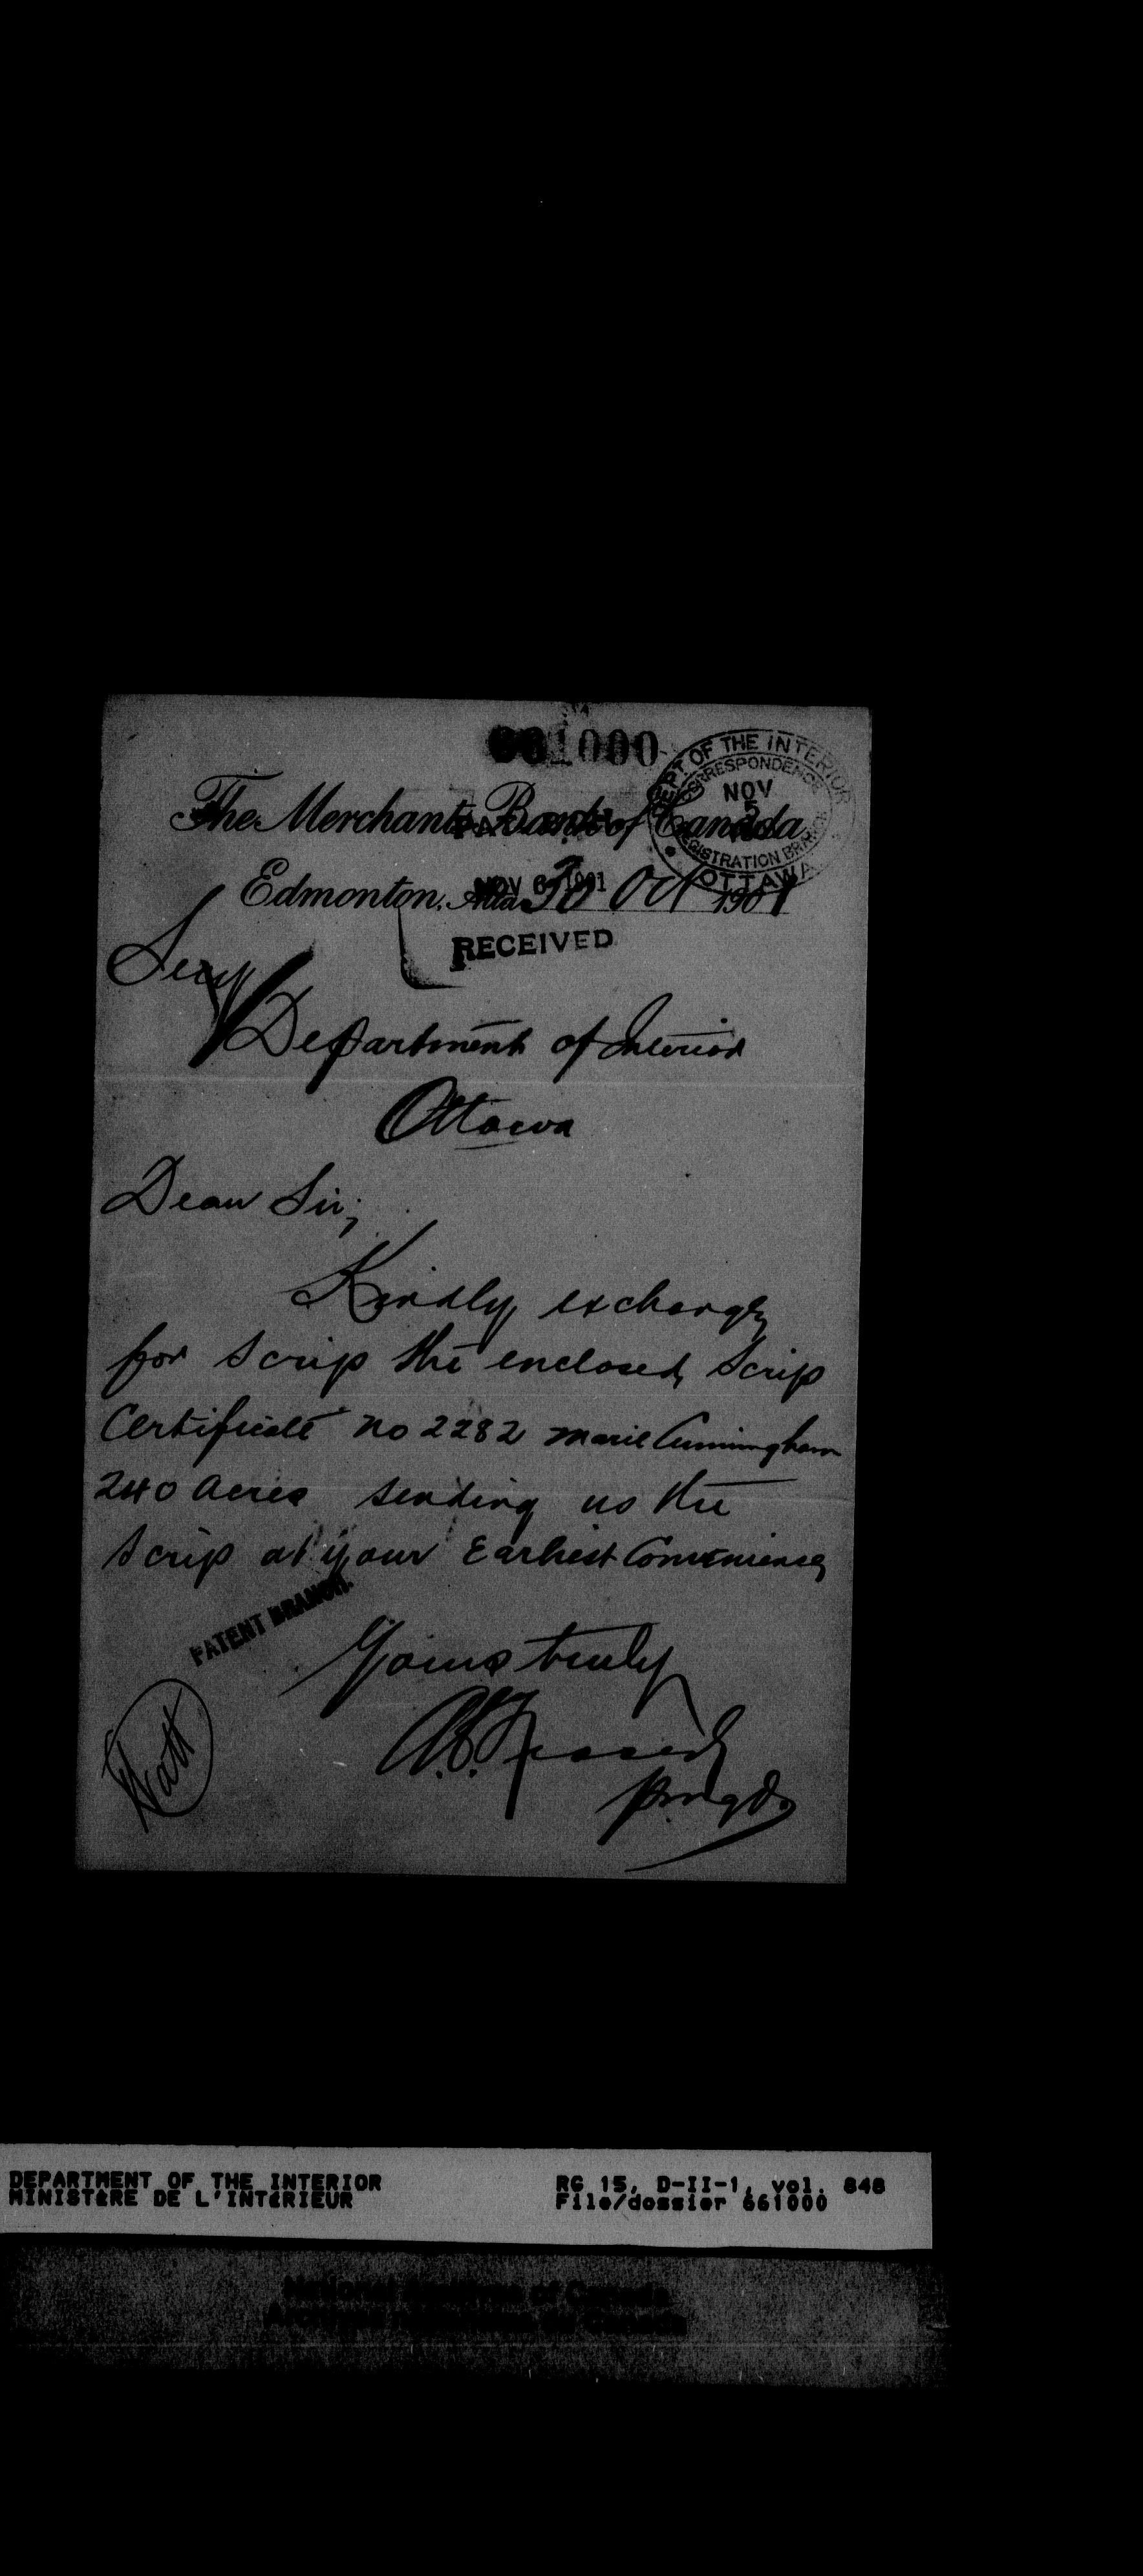 661000
DEPT OF THE INTERIOR
CORRESPONDENCE
NOV
5
REGISTRATION BRANCH
OTTAWA
The Merchants Bank of Canada
Edmonton, Alta 30 Oct 1901
NOV 6 1901
RECEIVED
Secy
Department of Interior
Ottawa
Dear Sir;
Kindly exchange
for Scrip the enclosed Scrip
Certificate no 2282 Marie Cunningham
240 Acres sending us the
Scrip at your Earliest Convenience
PATENT BRANCH.
Yours truly
DEPARTMENT OF THE INTERIOR
MINISTÈRE DE L'INTÉRIEUR
RG 15, D-II-1, vol. 848
File/dossier 661000
National Archives of Canada